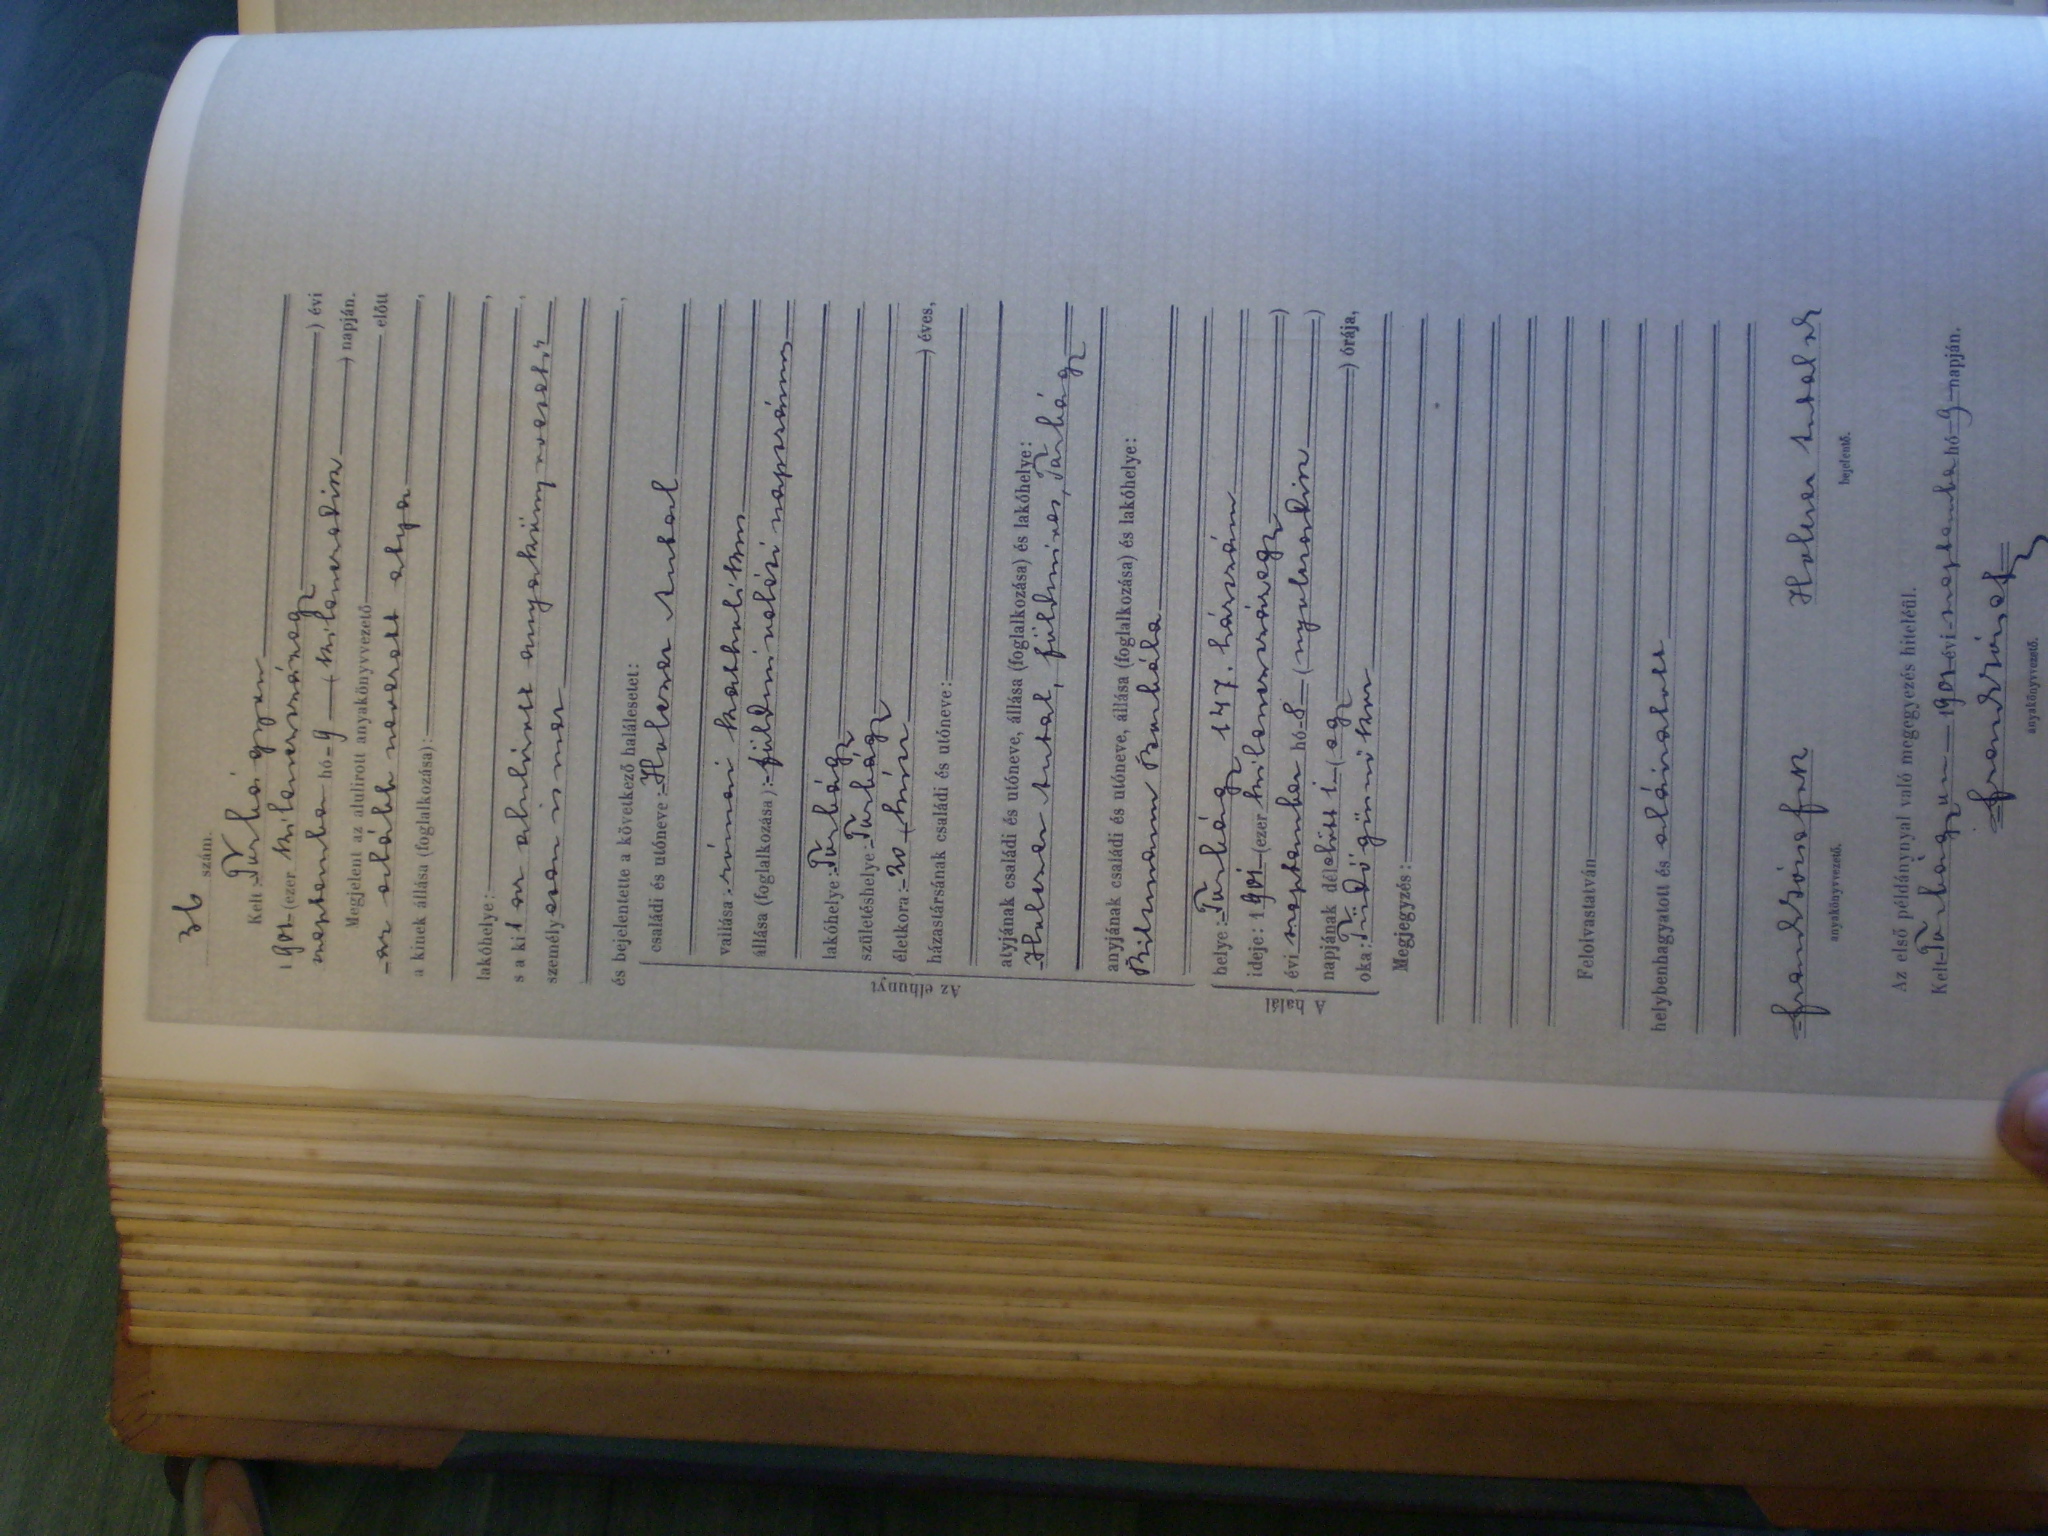 36 szám.
Kelt Tarhágyan
1901 (ezer kilencszázegy) évi
szeptember hó 9 (kilencedik) napján.
Megjelent az alulirott anyakönyvvezető előtt
az alább nevezett atya
a kinek állása (foglalkozása):
lakóhelye:
s a kit az alulirott anyakönyvvezető
személyesen ismer
és bejelentette a következő halálesetet:
Az elhunyt
családi és utóneve: Antal
vallása: római katholikus
állása (foglalkozása): földmivelési napszámos
lakóhelye:
születéshelye:
életkora: 20 (húsz
) éves,
házastársának családi és utóneve:
atyjának családi és utóneve, állása (foglalkozása) és lakóhelye:
Antal, földmives,
anyjának családi és utóneve, állása (foglalkozása) és lakóhelye:
Borbála
A halál
helye: 147. házszám
ideje: 1901 (ezer kilencszázegy)
évi szeptember hó 8 (nyolczadik)
napjának délelőtt 1 (egy) órája,
oka: Tüdőgümőkór
Megjegyzés:
Felolvastatván
helybenhagyatott és aláiratott
Antal
anyakönyvvezető. bejelentő.
Az első példánynyal való megegyezés hiteléül.
Kelt 1901 évi szeptember hó 9 napján.
anyakönyvvezető.